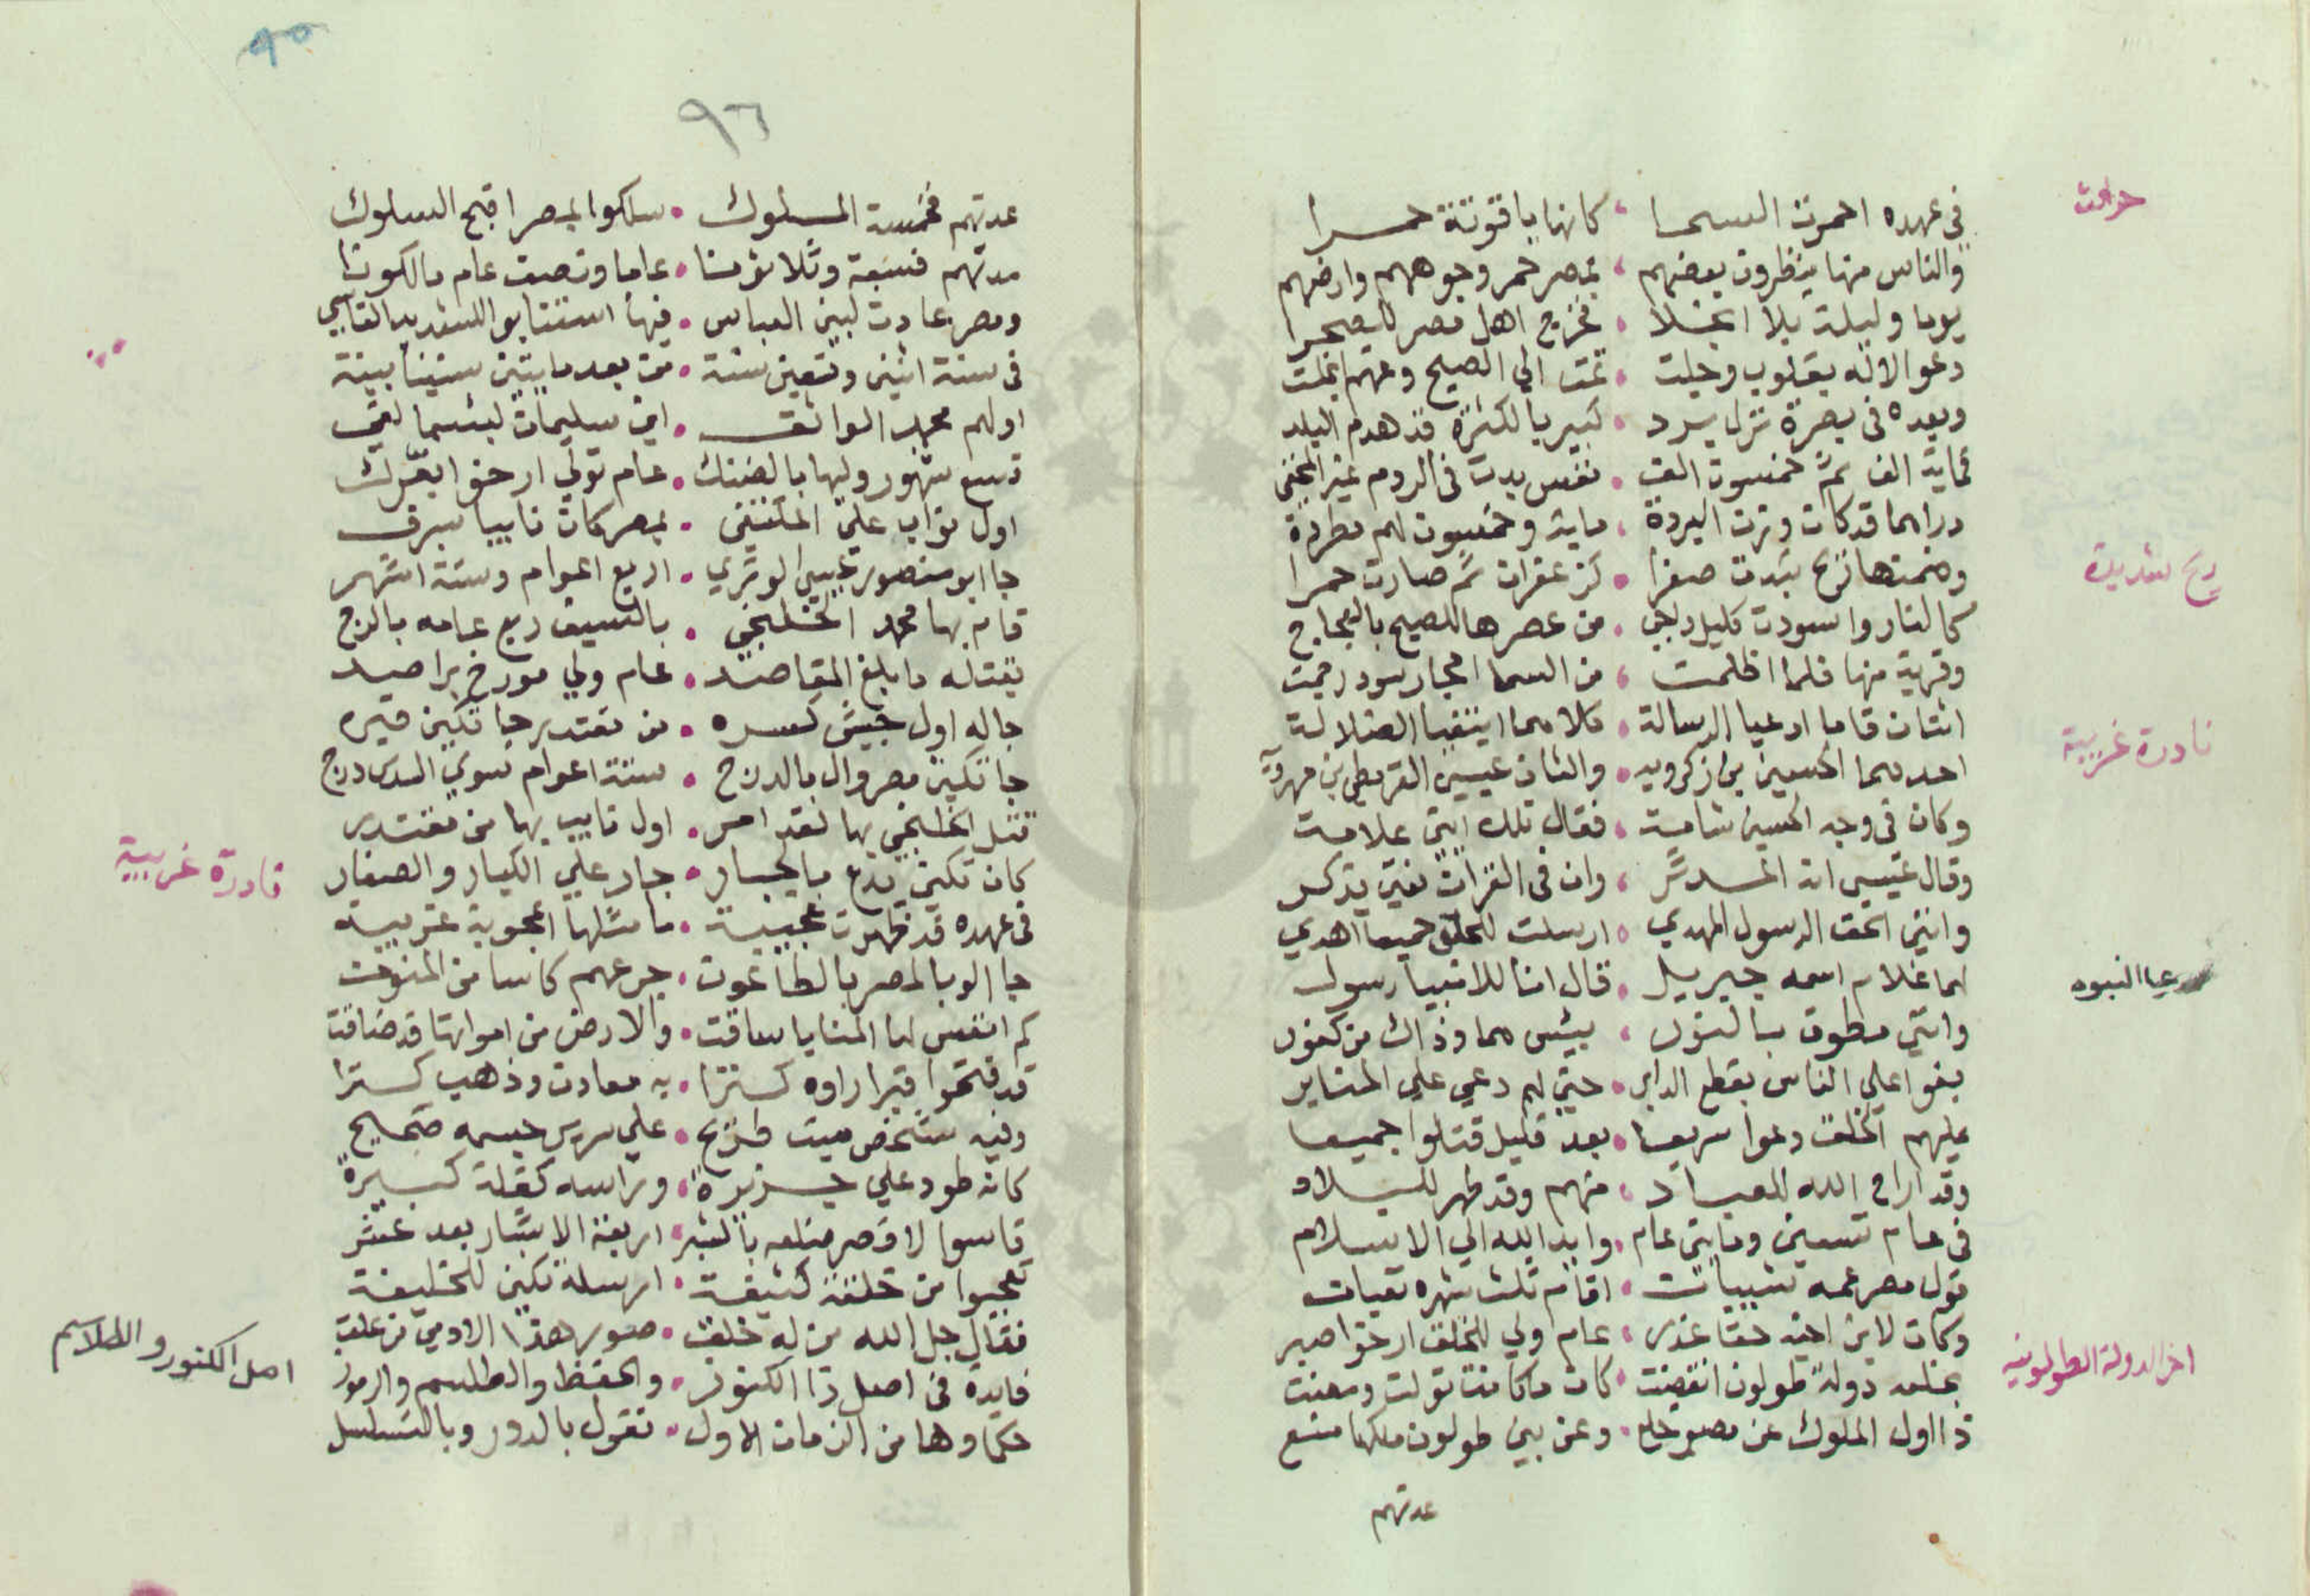 حوادث
في عهده احمرت السما ، كانها ياقوتة حمرا
والناس منها ينظرون بعضهم ، بمصر حمر وجوههم وارضهم
يوما وليلة بلا انجلا . فخرج اهل مصر للصحرا
دعوا الاله بقلوب وجلت . تمت الي الصبح وعنهم انجلت
وبعده في بصرة نزل برد . كبير بالكثرة قد هدم البلد
ثماية الف ثم خمسون الف . نفس بدت في الروم غير المختفي
دراهما قد كان وزن البردة . ماية وخمسون لهم مطردة
ريح شديدة
وضمنها ريح بدت صفرا . كزعفران ثم صارت حمرا
كالنار واسودت كليل داجي . من عصرها للصبح بالعجاج
وقرية منها فلما اظلمت ، من السما احجار سود رجمت
نادرة غريبة
اثنان قاما ادعيا الرسالة . كلاهما ابتغيا الضلالة
احدهما الحسين بن زكرويه . والثان عيسي القرمطي بن مهرويه
وكان في وجه الحسين شامة . فقال تلك ايتي علامة
وقال عيسي انه المدثر ، وان في القران نعتي يذكر
وانني الحق الرسول المهدي . ارسلت للخلق جميعا اهدي
عيا النبوه
لهما غلام اسمه جبريل . قال انا للانبيا رسول
وانني مطوق بالنور ، بئس هما وذاك من كفور
بغوا علي الناس بقطع الدابر . حتي لهم دعي علي المنابر
عليهم الخلق دعوا سريعا . بعد قليل قتلوا جميعا
وقد اراح الله للعباد ، منهم وقد طهر للبلاد
في عام تسعين ومايتي عام . وايد الله الي الاسلام
تول مصر عمه شيبان . اقام ثلث شهره تعبان
وكان لابن اخيه حقا غدر ، عام ولي للخلق ارخ اصبر
اخر الدولة الطولونيه
بخلعه دولة طولون انقضت . كان ما كانت تولت ومضت
ذا اول الملوك عن مصر خلع . وعن بني طولون ملكها منع
عدتهم
٩٥
٩٦
عدتهم فخمسة الملوك . سلكوا بمصر اقبح السلوك
مدتهم فسبعة وثلاثونا . عاما ونصف عام مالكونا
ومصر عادت لبني العباس . فيها استنابوا للشديد القاسي
في سنة اثنى وتسعين سنة . من بعد مايتين سنينا بينة
اولهم محمد الواثقى . ابن سليمان لبئسما لقي
تسع شهور وليها بالضنك . عام تولي ارخوا بعزلك
اول نواب علي المكتفي . بمصر كان نايبا بسرف
جا ابو منصور عيسي النوشري . اربع اعوام وستة اشهر
قام بها محمد الخلنجي . بالسيف ربع عامه بالدرج
بقتله ما بلغ المقاصد . عام ولي مورخ براصد
جا له اول جيش كسره . من مقتدر جا تكين قبره
جا تكين مصر وال بالدرج . ستة اعوام سوي السدس درج
قتل الخلنجي بها لقد امر . اول نايب بها من مقتدر
نادرة غريبية
كان تكين يدع بالجبار . جار علي الكبار والصغار
في عهده قد ظهرت عجيبة . ما مثلها اعجوبة غريبه
جا الوبا لمصر بالطاعون . جرعهم كاسا من المنون
كم انفس لها المنايا ساقت . والارض من امواتها قد ضاقت
قد فتحوا قبرا راوه كنزا . به معادن وذهب كنزا
وفيه شخص ميت طريح . علي سرير جسمه صحيح
كانه طود علي جزيرة . وراسه كقلة كبيرة
قاسوا لاقصر ضلعه بالشبر . اربعة الاشبار بعد عشر
تعجبوا من خلقة كثيفة . ارسله تكين للخليفة
فقال جل الله من له خلق . صور هذا الادمي من علق
اصل الكنوز والطلاسم
فايدة في اصل ذا الكنوز . والحفظ والطلسم والرموز
حكماوها من الزمان الاول . نقول بالدور وبالتسلسل